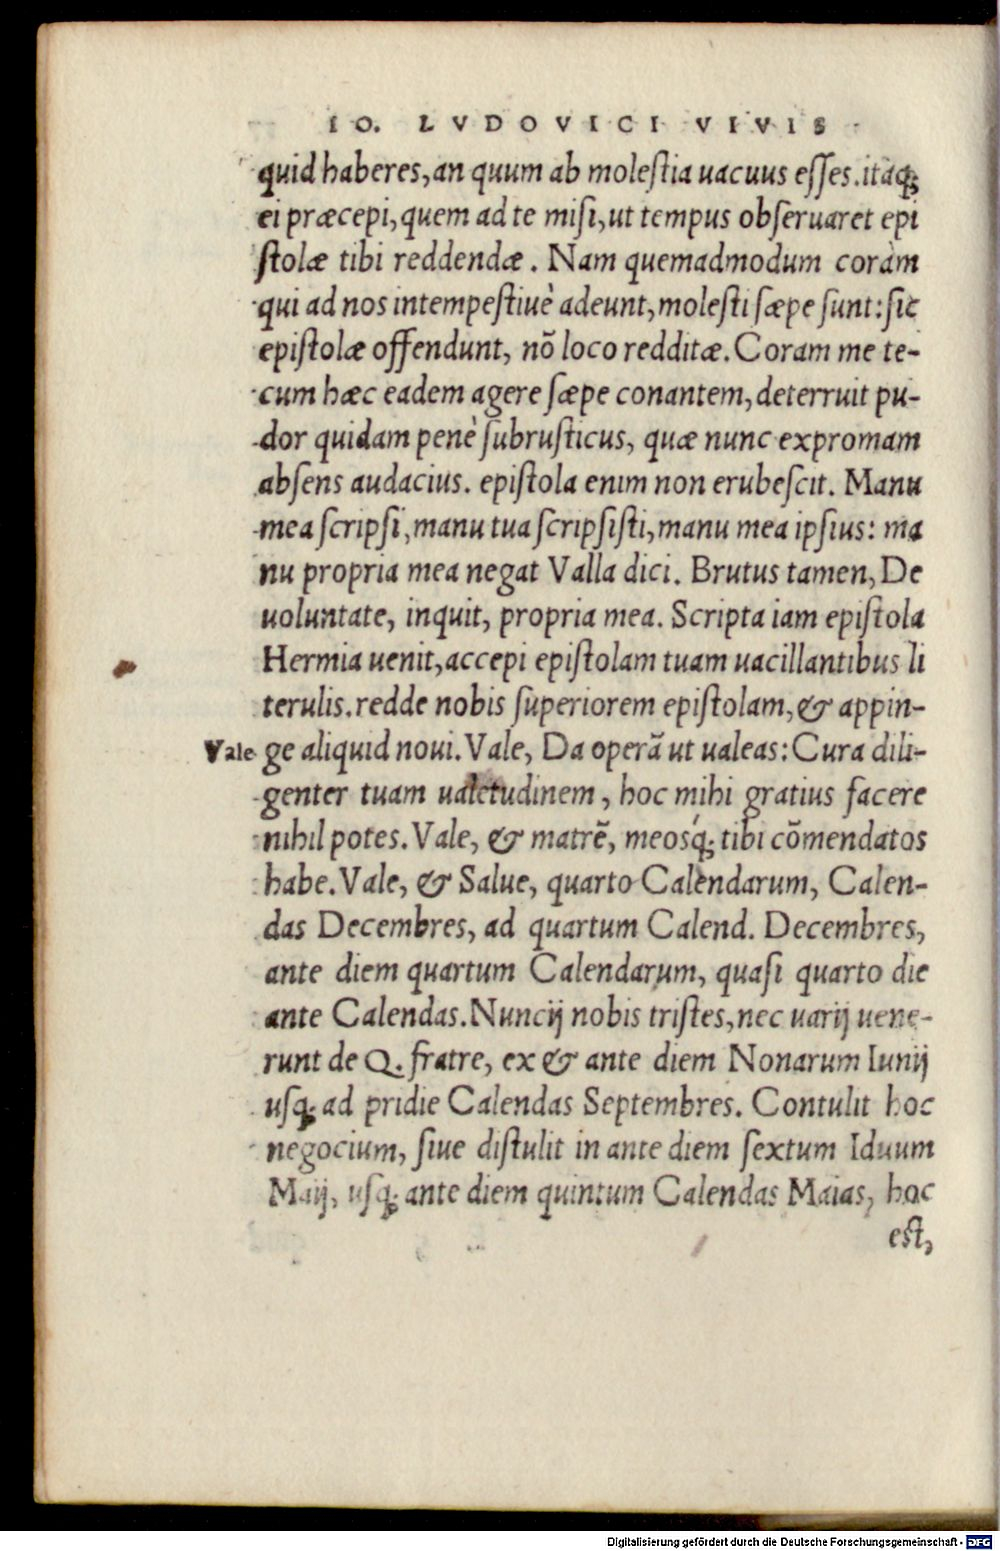 IO. LVDOVICI VIVIS
quid haberes, an quum ab molestia uacuus esses. itaq;
ei præcepi, quem ad te misi, ut tempus obseruaret epi
stolæ tibi reddendæ. Nam quemadmodum coràm
qui ad nos intempestiuè adeunt, molesti sæpe sunt: sic
epistolæ offendunt, nõ loco redditæ. Coram me te-
cum hæc eadem agere sæpe conantem, deterruit pu-
dor quidam penè subrusticus, quæ nunc expromam
absens audacius. epistola enim non erubescit. Manu
mea scripsi, manu tua scripsisti, manu mea ipsius: ma
nu propria mea negat Valla dici. Brutus tamen, De
uoluntate, inquit, propria mea. Scripta iam epistola
Hermia uenit, accepi epistolam tuam uacillantibus li
terulis. redde nobis superiorem epistolam, & appin-
Vale ge aliquid noui. Vale, Da operã ut ualeas: Cura dili-
genter tuam ualetudinem, hoc mihi gratius facere
nihil potes. Vale, & matrẽ, meosq́; tibi cõmendatos
habe. Vale, & Salue, quarto Calendarum, Calen-
das Decembres, ad quartum Calend. Decembres,
ante diem quartum Calendarum, quasi quarto die
ante Calendas. Nuncij nobis tristes, nec uarij uene-
runt de Q. fratre, ex & ante diem Nonarum Iunij
usq; ad pridie Calendas Septembres. Contulit hoc
negocium, siue distulit in ante diem sextum Iduum
Maij, usq; ante diem quintum Calendas Maias, hoc
est,
Digitalisierung gefördert durch die Deutsche Forschungsgemeinschaft - DFG